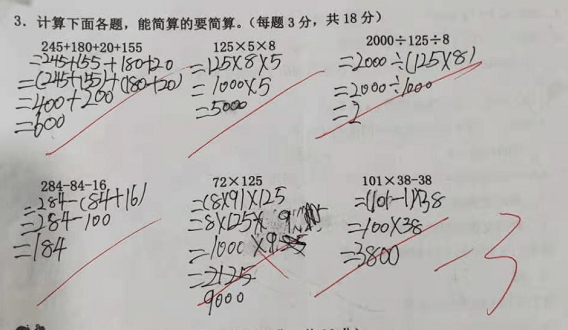 3. 计算下面各题，能简算的要简算。（每题 3 分，共 18 分）
245+180+20+155
=245+155+180+20
=(245+155)+(180+20)
=400+200
=600
125×5×8
=125×8×5
=1000×5
=5000
2000÷125÷8
=2000÷(125×8)
=2000÷1000
=2
284-84-16
=284-(84+16)
=284-100
=184
72×125
=(8×9)×125
=8×125×9
=1000×9
=2125
9000
101×38-38
=(101-1)×38
=100×38
=3800
-3